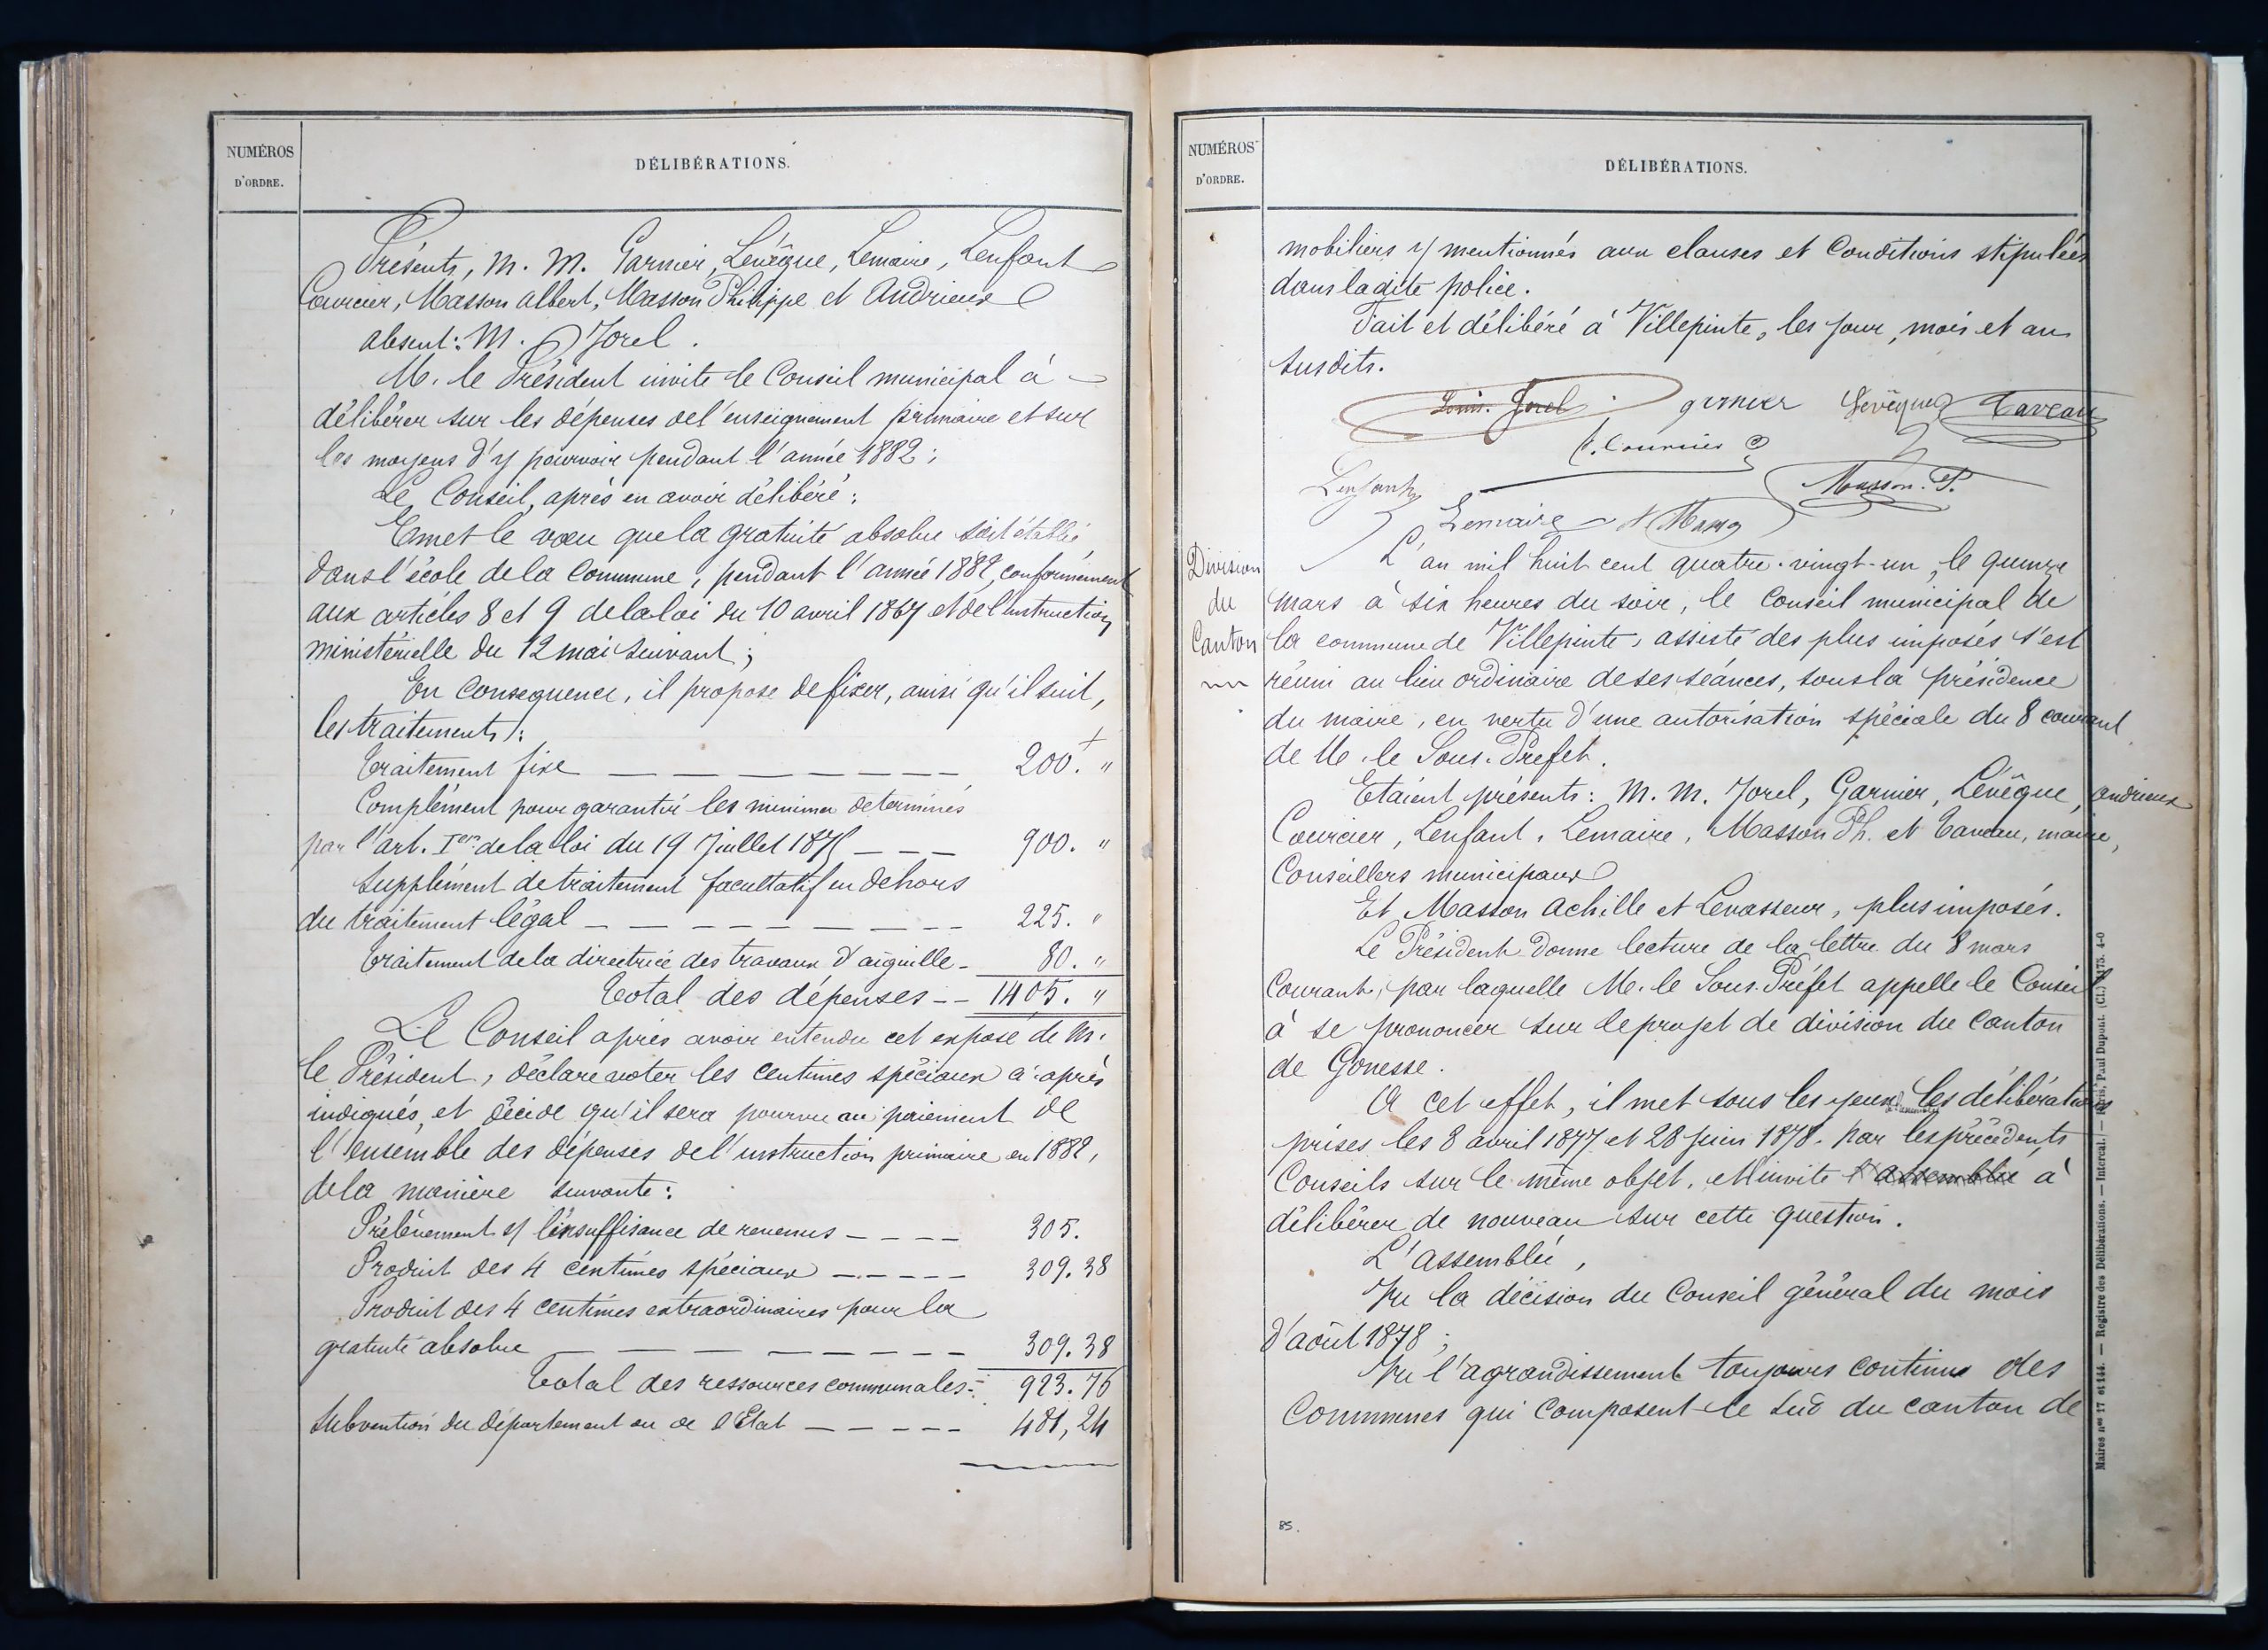 NUMÉROS
D'ORDRE.
DÉLIBÉRATIONS.
Présents, M. M. Garnier, Levêque, Lemaire, Lenfant
Courcier, Masson albert, Masson Philippe et Andrieux
absent: M. Jorel.
M. le Président invite le Conseil municipal à
délibérer sur les dépenses de l'enseignement primaire et sur
les moyens d'y pourvoir pendant l'année 1882;
Le Conseil, après en avoir délibéré:
Emet le voeu que la gratuité absolue soit établie
dans l'école de la Commune, pendant l'année 1882, conformément
aux articles 8 et 9 de la loi du 10 avril 1867 et de l'instruction
ministérielle du 12 mai suivant;
En conséquence, il propose de fixer, ainsi qu'il suit,
les traitements:
Traitement fixe — — — — — — — — 200. "
Complément pour garantir les minima déterminés
par l'art. Ier de la loi du 19 Juillet 1875 — — — 900. "
Supplément de traitement facultatif en dehors
du traitement légal — — — — — — — — 225. "
Traitement de la directrice des travaux d'aiguille — 80. "
Total des dépenses -- 1405. "
Le Conseil après avoir entendu cet exposé de M.
le Président, déclare voter les centimes spéciaux ci-après
indiqués, et décide qu'il sera pourvu au paiement de
l'ensemble des dépenses de l'instruction primaire en 1882,
de la manière suivante:
Prélèvement s/ l'insuffisance de revenus — — — — 305.
Produit des 4 centimes spéciaux — — — — — 309.38
Produit des 4 centimes extraordinaires pour la
gratuité absolue — — — — — — — — 309.38
Total des ressources communales: 923.76
Subvention du département ou de l'Etat — — — — — 481,24
NUMÉROS
D'ORDRE.
DÉLIBÉRATIONS.
mobiliers y mentionnés aux clauses et Conditions stipulées
dans ladite police.
Fait et délibéré à Villepinte, les jour, mois et an
susdits.
Louis Jorel garnier Levêque Taveau
C. Courcier
Lenfant Masson. P.
Lemaire A Masson
Division
du
Canton
L'an mil huit cent quatre-vingt-un, le quinze
mars à six heures du soir, le Conseil municipal de
la commune de Villepinte, assisté des plus imposés s'est
réuni au lieu ordinaire de ses séances, sous la présidence
du maire, en vertu d'une autorisation spéciale du 8 courant
de M. le Sous-Préfet.
Etaient présents: M. M. Jorel, Garnier, Levêque, andrieux
Courcier, Lenfant, Lemaire, Masson Ph. et Taveau, maire,
Conseillers municipaux
Et Masson Achille et Levasseur, plus imposés.
Le Président donne lecture de la lettre du 8 mars
Courant, par laquelle M. le Sous-Préfet appelle le Conseil
à se prononcer sur le projet de division du Canton
de Gonesse.
A cet effet, il met sous les yeux les délibérations
prises les 8 avril 1877 et 28 juin 1878. par les précédents
Conseils sur le même objet, et invite l'assemblée à
délibérer de nouveau sur cette question.
L'assemblée,
Vu la décision du Conseil général du mois
d'août 1878;
Vu l'agrandissement toujours continu des
Communes qui composent le sud du canton de
85.
Maires nos 17 et 144. — Registre des Délibérations. — Intercal. — Paris, Paul Dupont. (Cl.) 1175. 4-0